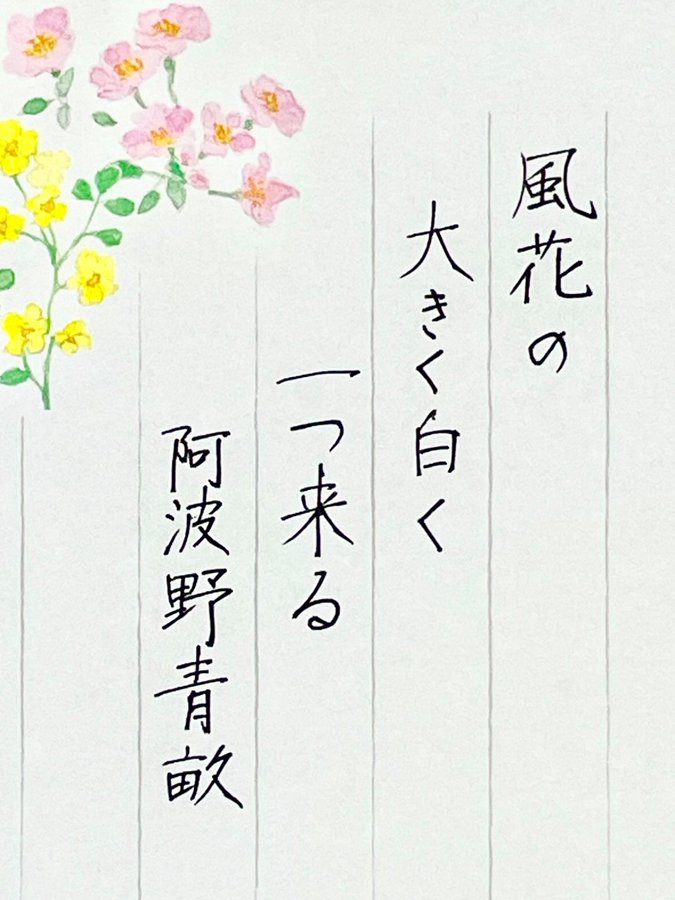 風花の
大きく白く
一つ来る
阿波野青畝